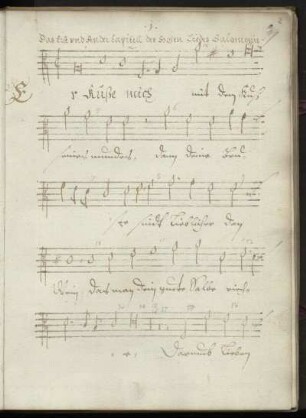 Das Erst und Ander Capitel des Hohen Liedes Salomonis
Er Küße mich mit dem Kuß
seines mundes, dann deine Brü
ste sindt lieblicher dan
Wein das man dein gute Salbe rieche
Darumb lieben